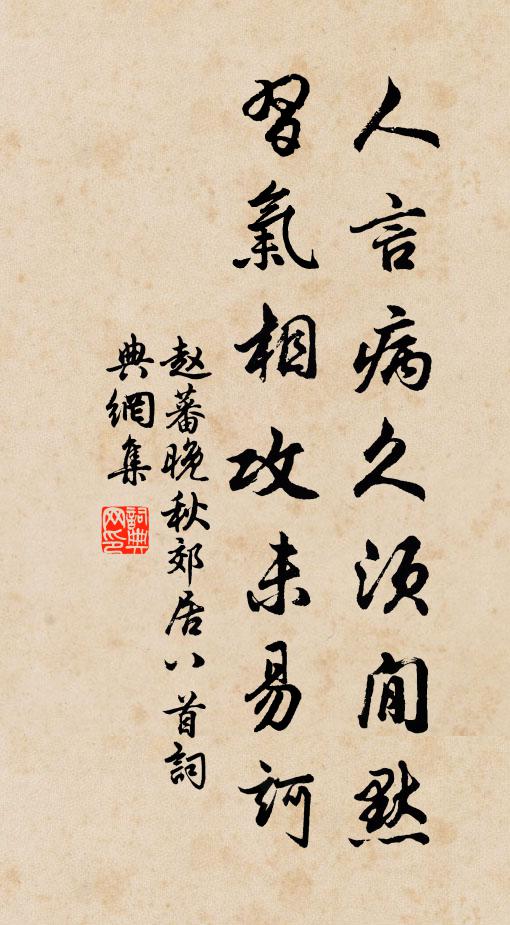 人言病久须闲默
習氣相攻未易訶
赵蕃晚秋郊居八首詞
典網集
詞典
网印